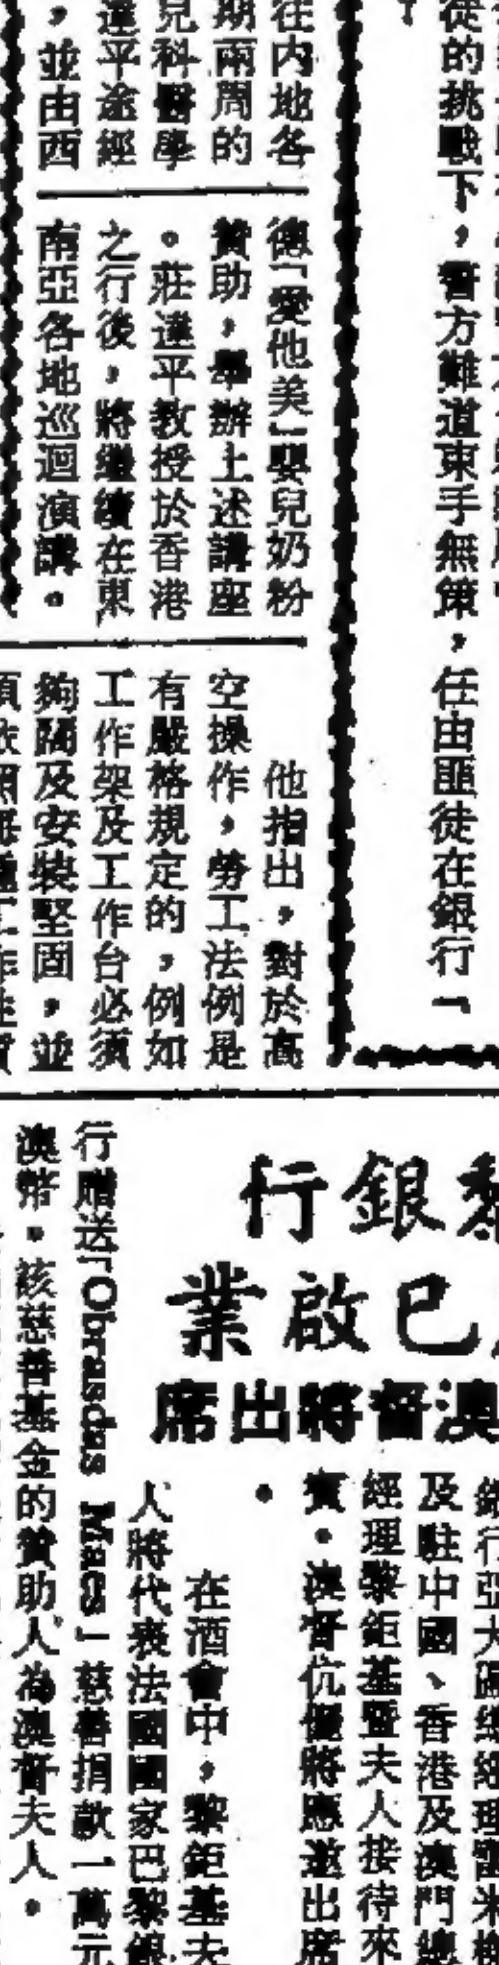 徒的挑戰下，警方難道束手無策，任由匪徒在銀行「
往內地各
期兩周的
兒科醫學
達平途經
，並由西
德「愛他美」嬰兒奶粉
贊助，舉辦上述講座
。莊達平教授於香港
之行後，將繼續在東
南亞各地巡迴演講。
他指出，對於高
空操作，勞工法例是
有嚴格規定的，例如
工作架及工作台必須
夠闊及安裝堅固，並
黎銀行
已啟業
澳督將出席
及駐中國、香港及澳門總
經理黎鉅基暨夫人接待來
賓。澳督伉儷將應邀出席
。
在酒會中，黎鉅基夫
人將代表法國國家巴黎銀
行贈送「Obrasdas Maes」慈善捐款一萬元
澳幣。該慈善基金的贊助人為澳督夫人。